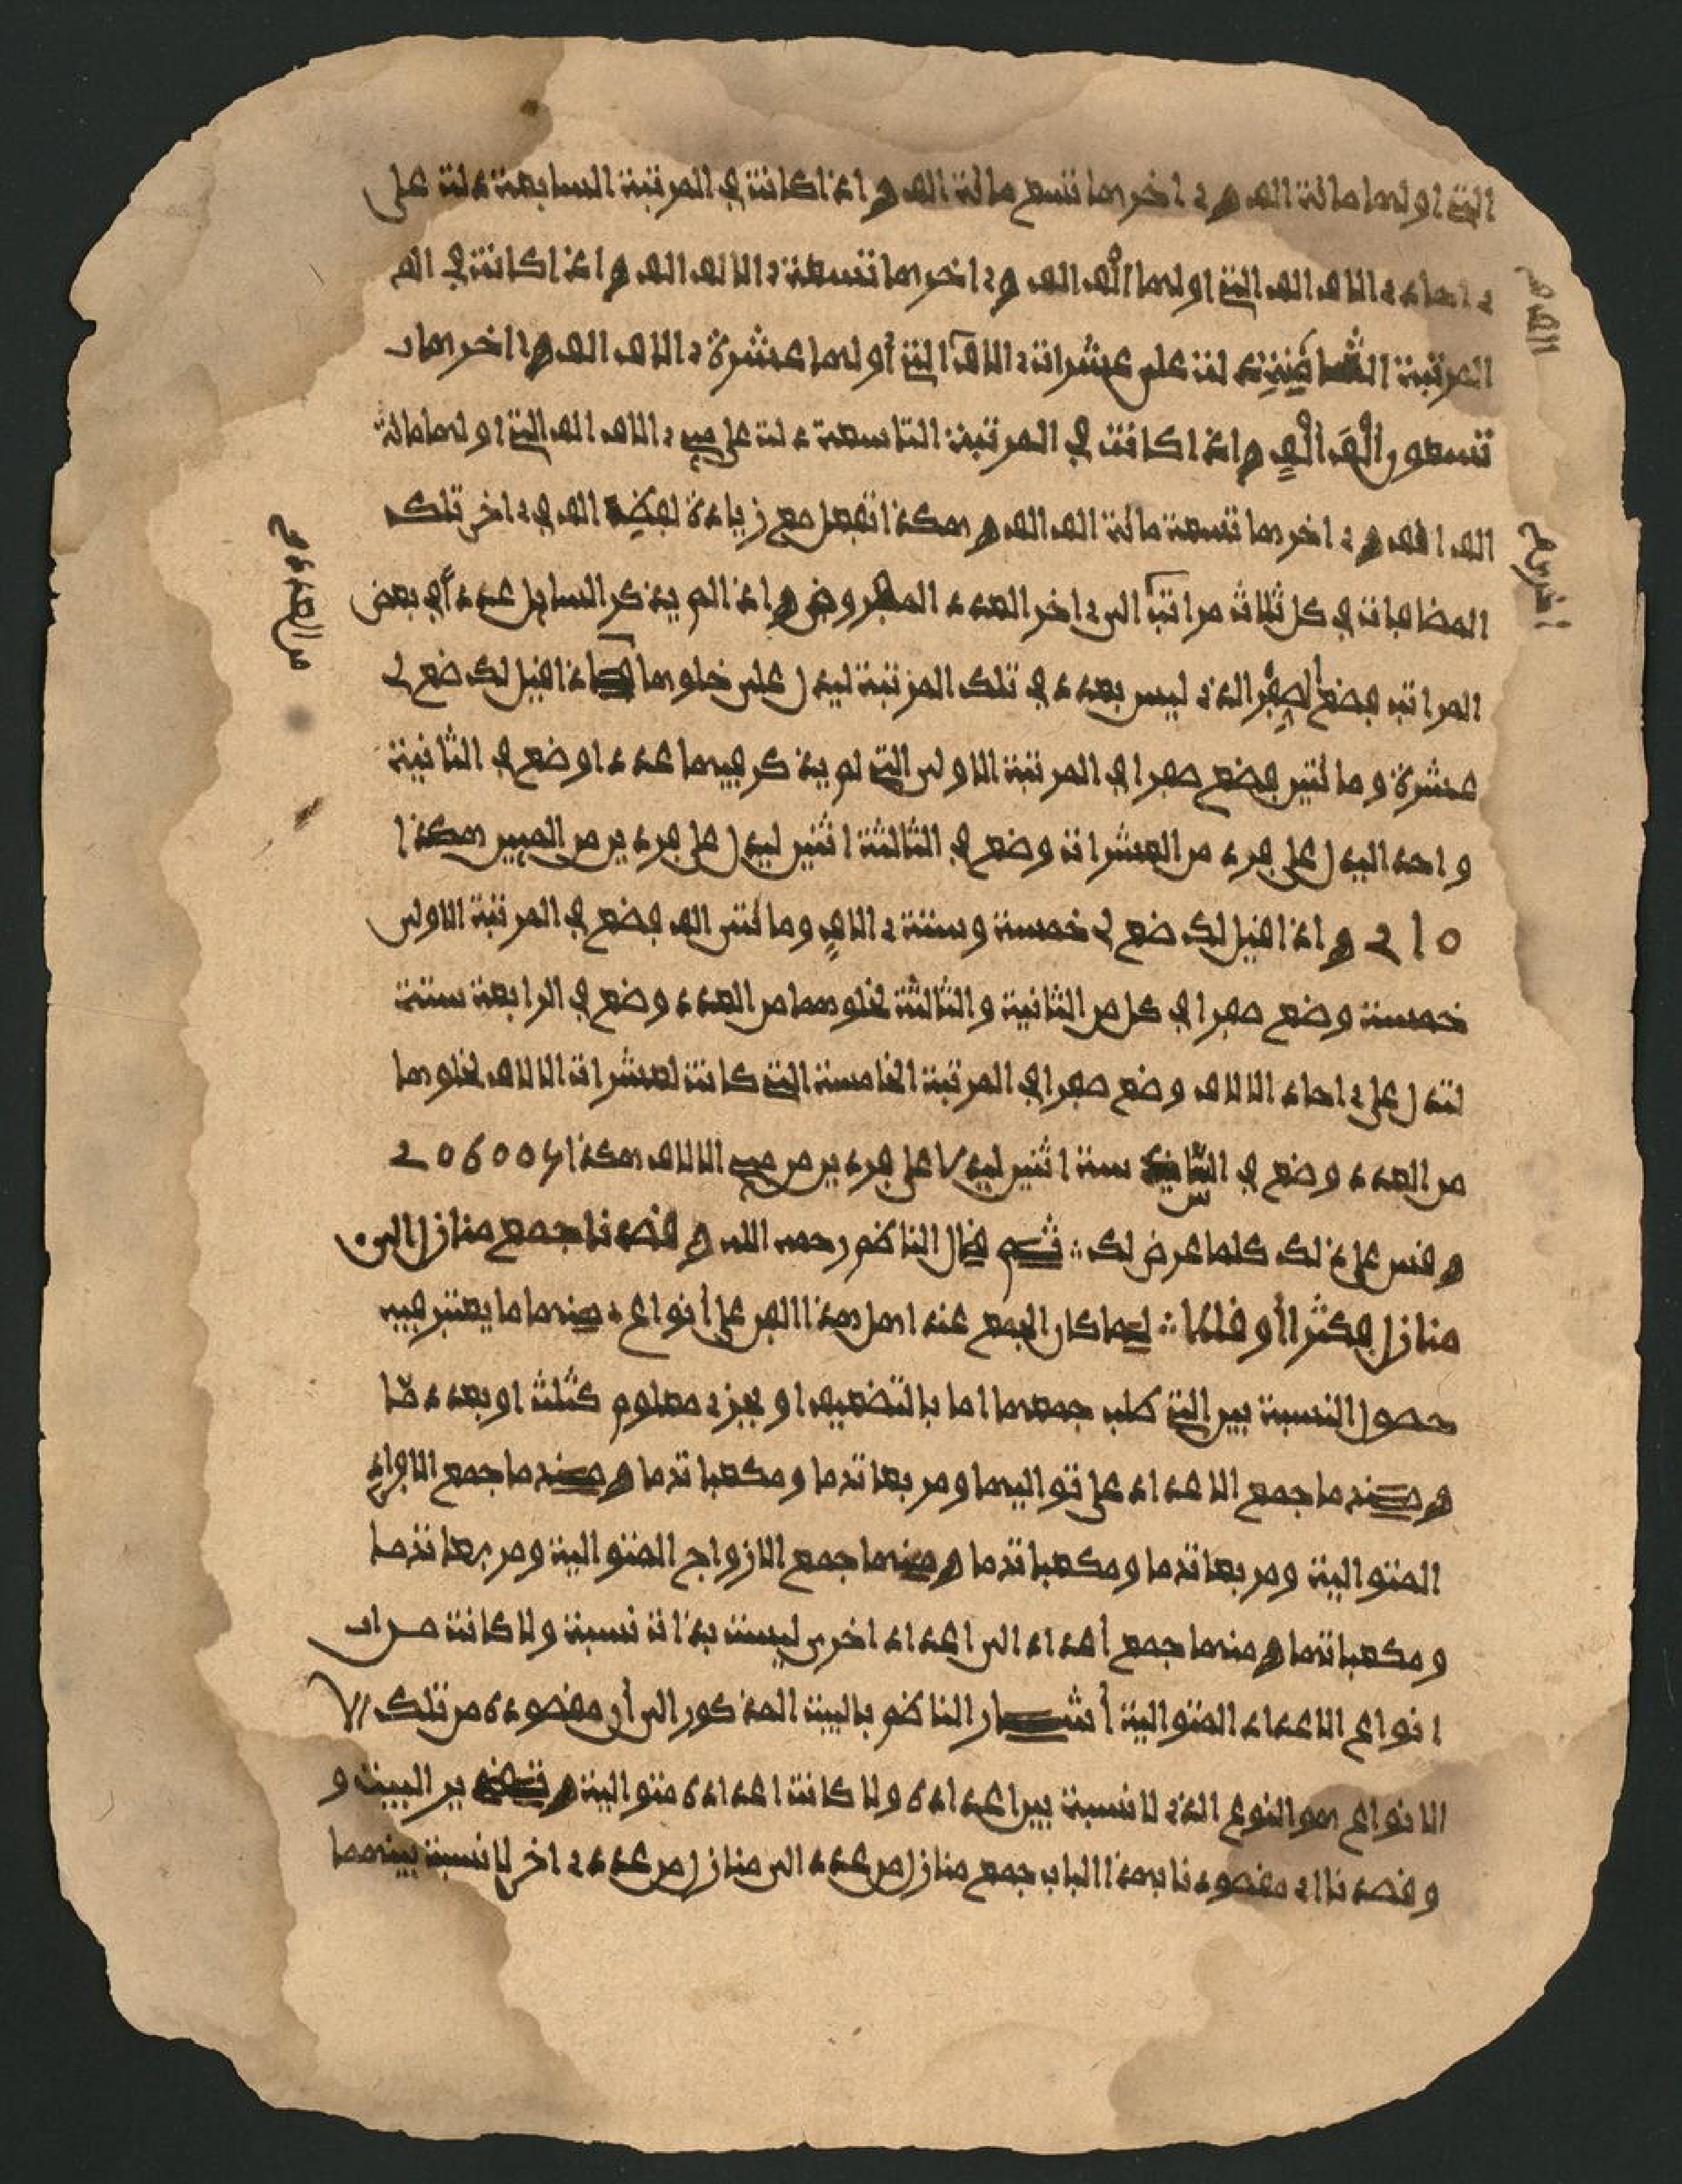 التي اولها مائة الف وءاخرها تسع مائة الف واذا كانت في المرتبة السابعة دلت على
ءاحاد ءالاف الف التي اولها الف الف وءاخرها تسعة ءالاف الف واذا كانت في الم
المرتبة الثامنة دلت على عشرات ءالاف التي أولها عشرة ءالاف الف وءاخرها
تسعون ألف ألف واذا كانت في المرتبة التاسعة دلت على ميي ءالاف الف التي اولها مائة
الف الف وءاخرها تسعة مائة الف الف وهكذا تفعل مع زيادة لفظة الف في ءاخر تلك
المضافات في كل ثلاث مراتب الى ءاخر العدد المفروض واذا لم يذكر السايل عددا في بعض
المراتب فضع الصفر الذي ليس بعدد في تلك المرتبة ليدل على خلوها فاذا قيل لك ضع لي
عشرة ومائتين فضع صفرا في المرتبة الاولى التي لم يذكر فيها عددا وضع في الثانية
واحدا ليدل على فرد من العشرات وضع في الثالثة اثنين ليدل على فردين من الميين هكذا
0 1 2 واذا قيل لك ضع لي خمسة وستة ءالاف ومائتي الف فضع في المرتبة الاولى
خمسة وضع صفرا في كل من الثانية والثالثة لخلوهما من العدد وضع في الرابعة ستة
لتدل على ءاحاد الالاف وضع صفرا في المرتبة الخامسة التي كانت لعشرات الالاف لخلوها
من العدد وضع في السادسة اثنين ليدل على فردين من ميي الالاف هكذا 206005
وقس على ذلك كلما عرض لك ∴ ثم قال الناظم رحمه الله وقصدنا جمع منازل الى
منازل فكثرا أو قللا ∴ لما كان الجمع عند اهل هذا الفن على أنواع منها ما يعتبر فيه
حصول النسبة بين التي طلب جمعها اما بالتضعيف او بجزء معلوم كثلث او بعدد ما
ومنها جمع الاعداد على تواليها ومربعاتها ومكعباتها ومنها جمع الافراد
المتوالية ومربعاتها ومكعباتها ومنها جمع الازواج المتوالية ومربعاتها
ومكعباتها ومنها جمع أعداد الى اعداد اخرى ليست بذات نسبة ولا كانت من
انواع الاعداد المتوالية أشار الناظم بالبيت المذكور الى أن مقصوده من تلك
الانواع هو النوع الذي لا نسبة بين اعداده ولا كانت اعداده متوالية البيت و
وقصدنا اي مقصودنا بهذا الباب جمع منازل من عدد الى منازل من عدد ءاخر لا نسبة بينهما